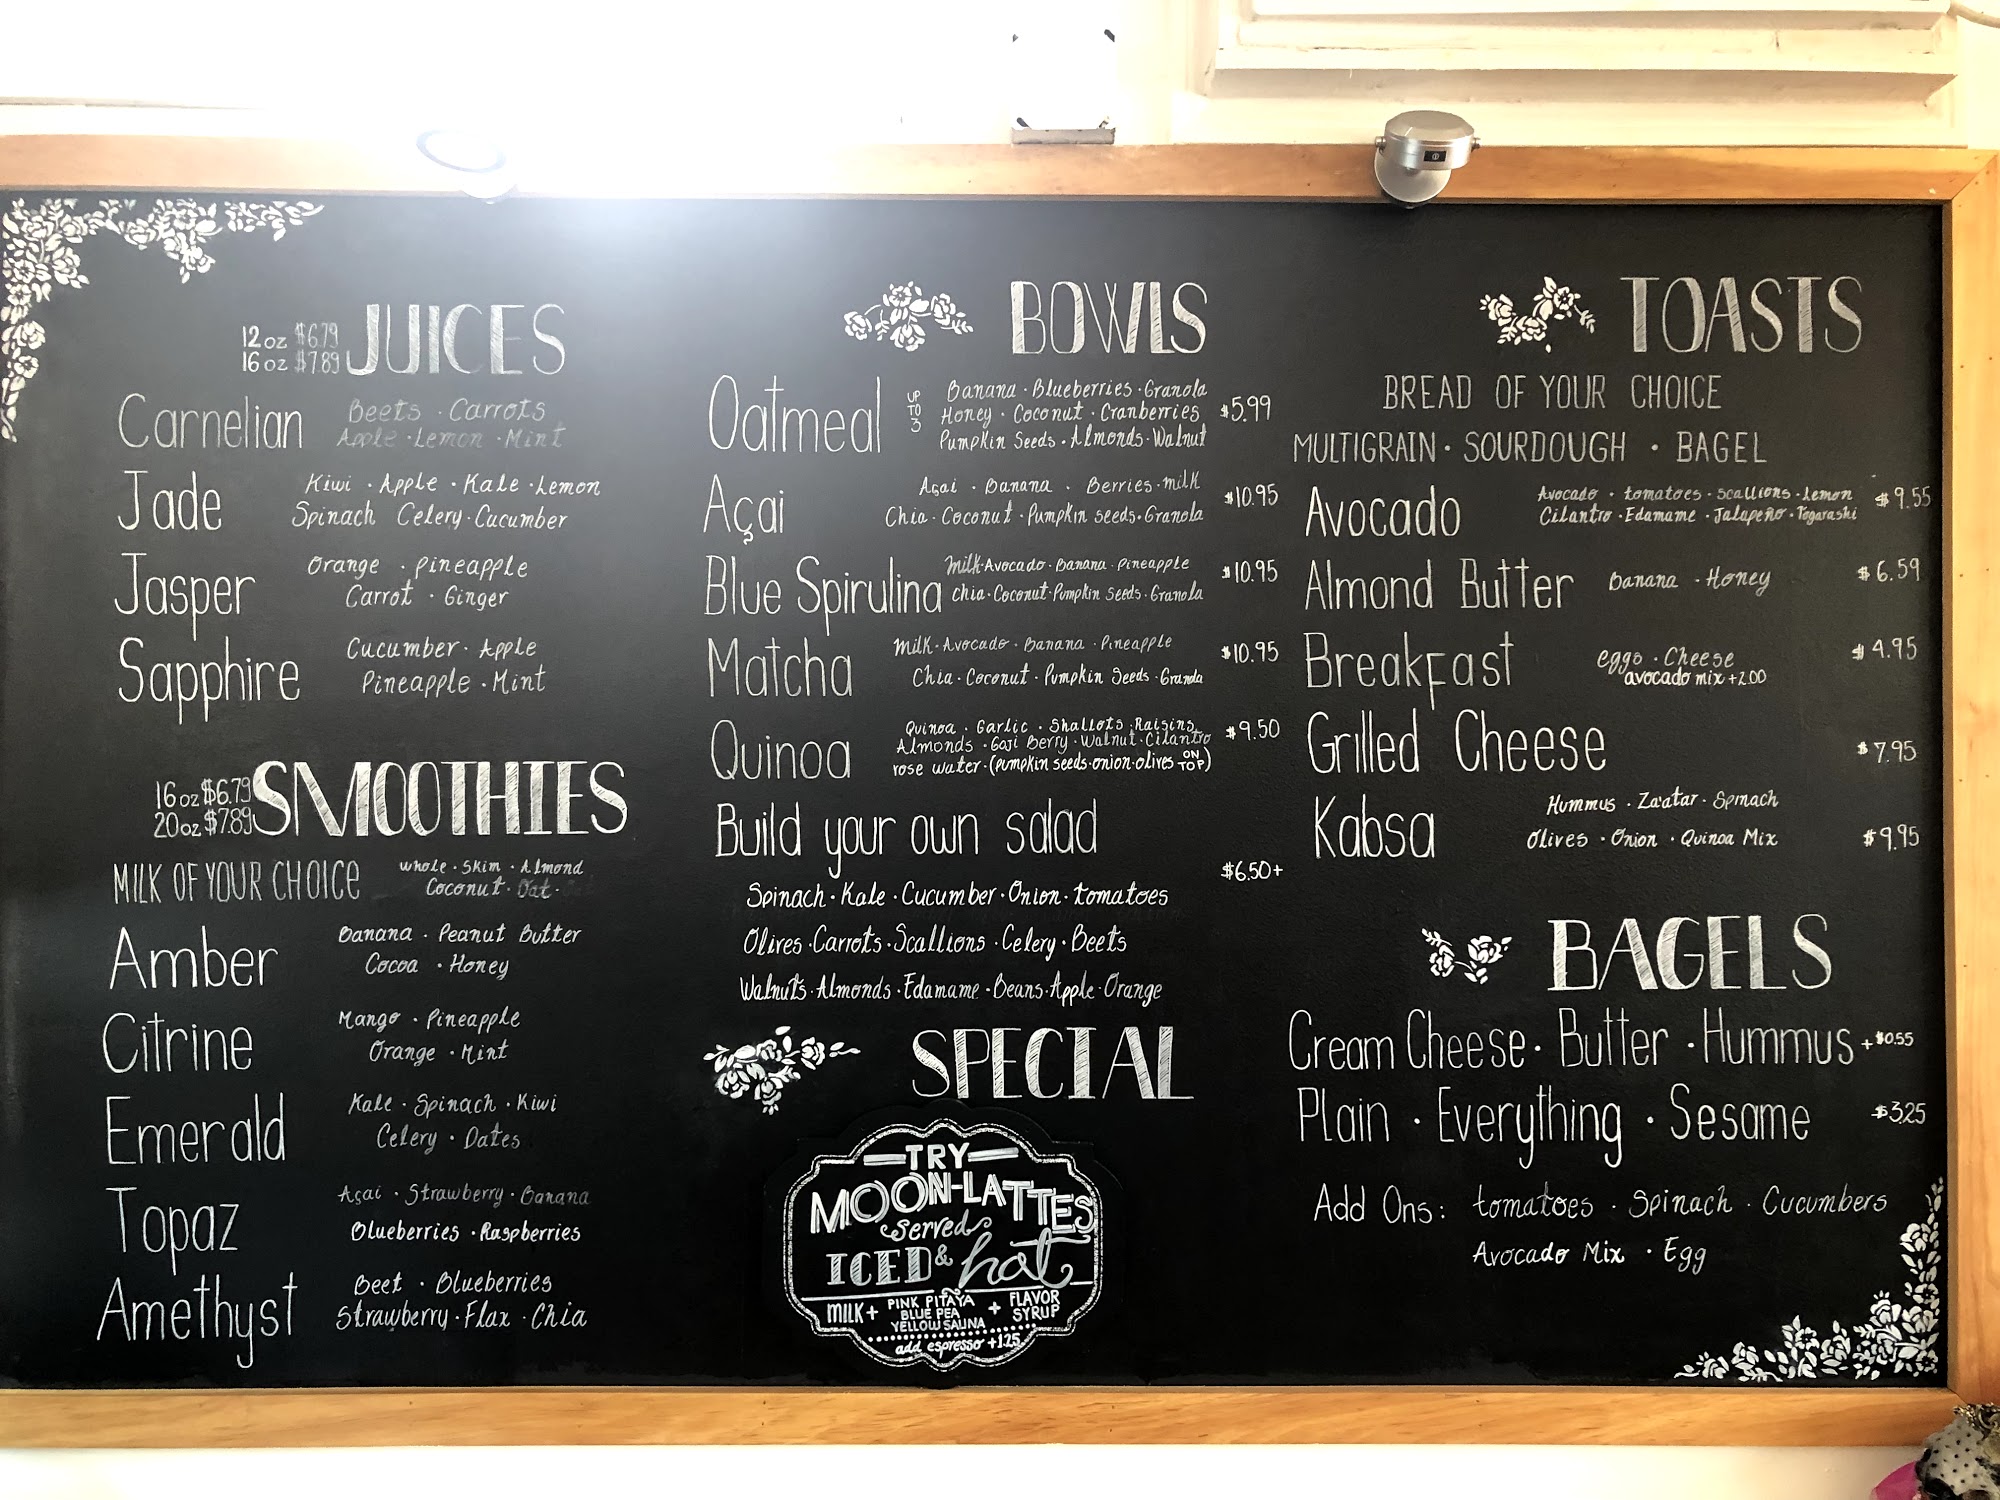 JUICES
12 oz $6.79
16 oz $7.89
Carnelian
Beets · Carrots
Apple · Lemon · Mint
Jade
Kiwi · Apple · Kale · Lemon
Spinach Celery · Cucumber
Jasper
Orange · Pineapple
Carrot · Ginger
Sapphire
Cucumber · Apple
Pineapple · Mint
SMOOTHIES
16 oz $6.79
20 oz $7.89
MILK OF YOUR CHOICE
whole · Skim · Almond
Coconut · Oat ·
Amber
Banana · Peanut Butter
Cocoa · Honey
Citrine
Mango · Pineapple
Orange · Mint
Emerald
Kale · Spinach · Kiwi
Celery · Dates
Topaz
Açai · Strawberry · Banana
Blueberries · Raspberries
Amethyst
Beet · Blueberries
Strawberry · Flax · Chia
BOWLS
Oatmeal
UP
TO
3
Banana · Blueberries · Granola
Honey · Coconut · Cranberries
Pumpkin Seeds · Almonds · Walnut
$5.99
Açai
Açai · Banana · Berries · milk
Chia · Coconut · Pumpkin seeds · Granola
$10.95
Blue Spirulina
Milk · Avocado · Banana · Pineapple
Chia · Coconut · Pumpkin Seeds · Granola
$10.95
Matcha
Milk · Avocado · Banana · Pineapple
Chia · Coconut · Pumpkin Seeds · Granola
$10.95
Quinoa
Quinoa · Garlic · Shallots · Raisins
Almonds · Goji Berry · Walnut · Cilantro
rose water · (pumpkin seeds · onion · olives ON TOP)
$9.50
Build your own salad
$6.50+
Spinach · Kale · Cucumber · Onion · tomatoes
Olives · Carrots · Scallions · Celery · Beets
Walnuts · Almonds · Edamame · Beans · Apple · Orange
SPECIAL
TRY
MOON-LATTES
served
ICED & hot
MILK + PINK PITAYA + FLAVOR
BLUE PEA SYRUP
YELLOW SALINA
add espresso +1.25
TOASTS
BREAD OF YOUR CHOICE
MULTIGRAIN · SOURDOUGH · BAGEL
Avocado
Avocado · tomatoes · scallions · Lemon
Cilantro · Edamame · Jalapeño · Togarashi
$9.55
Almond Butter
Banana · Honey
$6.59
Breakfast
eggs · Cheese
avocado mix +2.00
$4.95
Grilled Cheese
$7.95
Kabsa
Hummus · Za'atar · Spinach
Olives · Onion · Quinoa Mix
$9.95
BAGELS
Cream Cheese · Butter · Hummus +$0.55
Plain · Everything · Sesame $3.25
Add Ons: tomatoes · Spinach · Cucumbers
Avocado Mix · Egg